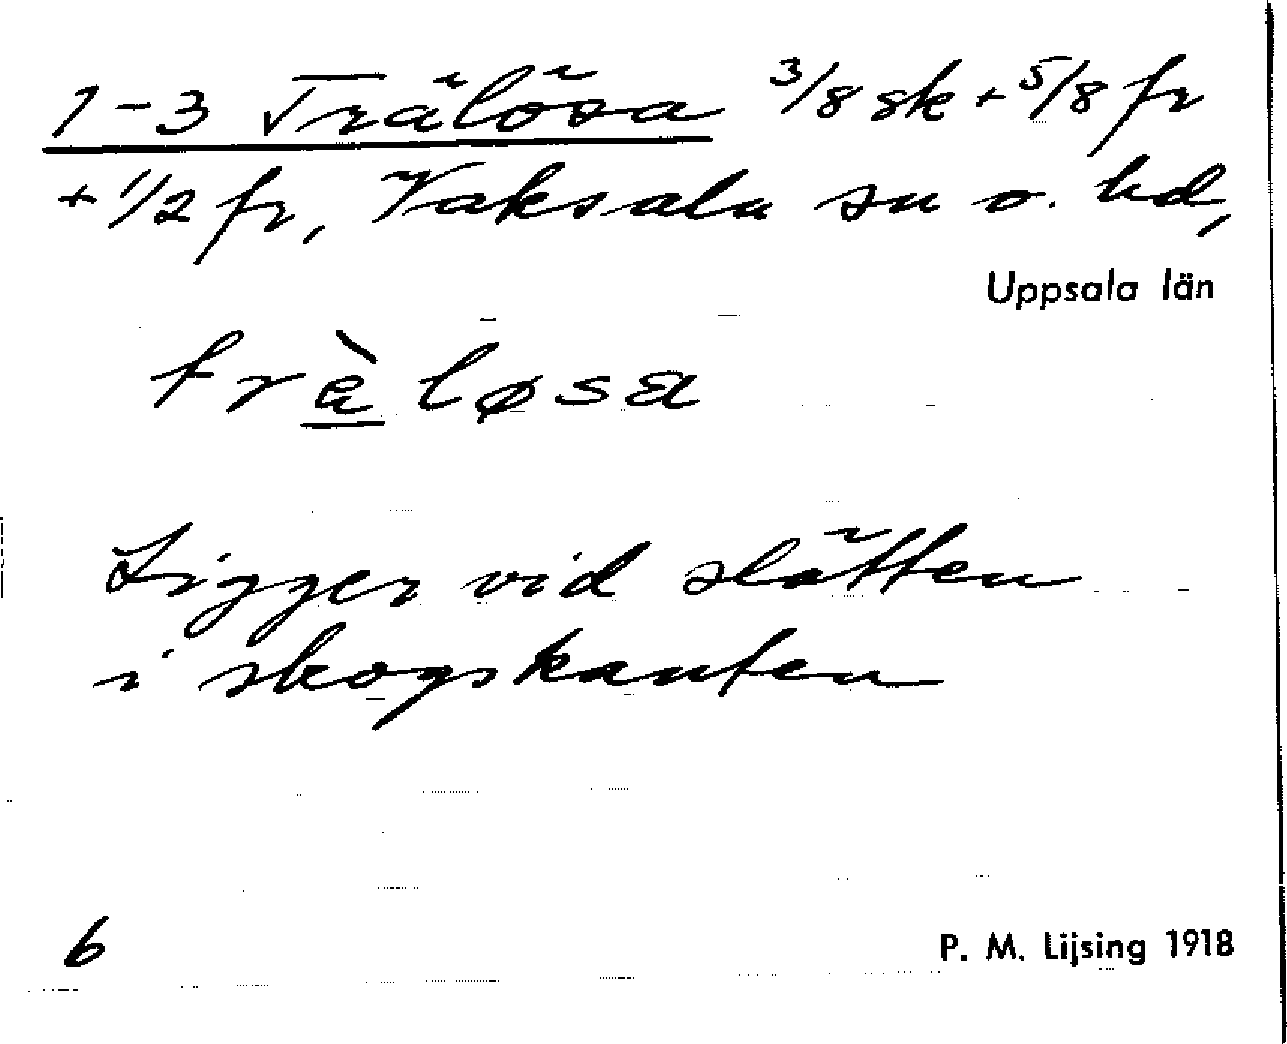 1-3 Trälösa 3/8 sk + 5/8 fr
+ 1/2 fr, Vaksala sn o. hd,
Uppsala län
træ̀løsa
Ligger vid slätten
i skogskanten
6
P. M. Lijsing 1918